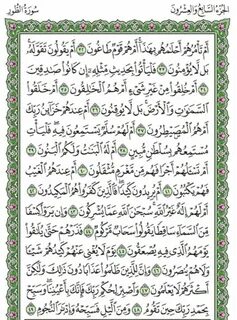 الجزء السابع والعشرون سورة الطور
أَمْ تَأْمُرُهُمْ أَحْلَٰمُهُم بِهَٰذَآ أَمْ هُمْ قَوْمٌ طَاغُونَ ٣٢ أَمْ يَقُولُونَ تَقَوَّلَهُۥ
بَل لَّا يُؤْمِنُونَ ٣٣ فَلْيَأْتُوا۟ بِحَدِيثٍ مِّثْلِهِۦٓ إِن كَانُوا۟ صَٰدِقِينَ
٣٤ أَمْ خُلِقُوا۟ مِنْ غَيْرِ شَىْءٍ أَمْ هُمُ ٱلْخَٰلِقُونَ ٣٥ أَمْ خَلَقُوا۟
ٱلسَّمَٰوَٰتِ وَٱلْأَرْضَ بَل لَّا يُوقِنُونَ ٣٦ أَمْ عِندَهُمْ خَزَآئِنُ رَبِّكَ
أَمْ هُمُ ٱلْمُصَۣيْطِرُونَ ٣٧ أَمْ لَهُمْ سُلَّمٌ يَسْتَمِعُونَ فِيهِ فَلْيَأْتِ
مُسْتَمِعُهُم بِسُلْطَٰنٍ مُّبِينٍ ٣٨ أَمْ لَهُ ٱلْبَنَٰتُ وَلَكُمُ ٱلْبَنُونَ ٣٩
أَمْ تَسْـَٔلُهُمْ أَجْرًا فَهُم مِّن مَّغْرَمٍ مُّثْقَلُونَ ٤٠ أَمْ عِندَهُمُ ٱلْغَيْبُ
فَهُمْ يَكْتُبُونَ ٤١ أَمْ يُرِيدُونَ كَيْدًا فَٱلَّذِينَ كَفَرُوا۟ هُمُ ٱلْمَكِيدُونَ ٤٢
أَمْ لَهُمْ إِلَٰهٌ غَيْرُ ٱللَّهِ سُبْحَٰنَ ٱللَّهِ عَمَّا يُشْرِكُونَ ٤٣ وَإِن يَرَوْا۟ كِسْفًا
مِّنَ ٱلسَّمَآءِ سَاقِطًا يَقُولُوا۟ سَحَابٌ مَّرْكُومٌ ٤٤ فَذَرْهُمْ حَتَّىٰ يُلَٰقُوا۟
يَوْمَهُمُ ٱلَّذِى فِيهِ يُصْعَقُونَ ٤٥ يَوْمَ لَا يُغْنِى عَنْهُمْ كَيْدُهُمْ شَيْـًٔا
وَلَا هُمْ يُنصَرُونَ ٤٦ وَإِنَّ لِلَّذِينَ ظَلَمُوا۟ عَذَابًا دُونَ ذَٰلِكَ وَلَٰكِنَّ
أَكْثَرَهُمْ لَا يَعْلَمُونَ ٤٧ وَٱصْبِرْ لِحُكْمِ رَبِّكَ فَإِنَّكَ بِأَعْيُنِنَا وَسَبِّحْ
بِحَمْدِ رَبِّكَ حِينَ تَقُومُ ٤٨ وَمِنَ ٱلَّيْلِ فَسَبِّحْهُ وَإِدْبَٰرَ ٱلنُّجُومِ ٤٩